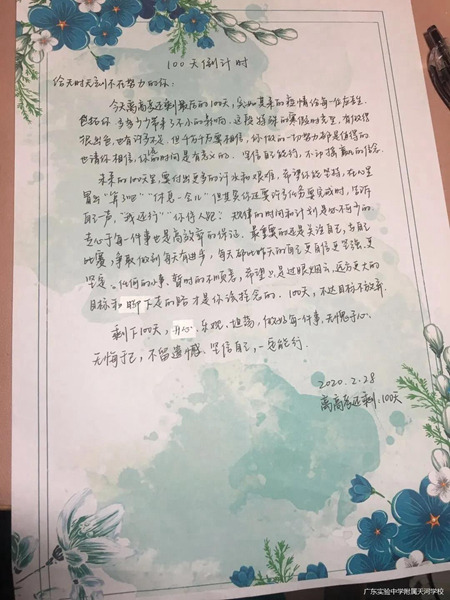 100天倒计时
给无时无刻不在努力的你:
今天离高考还剩最后的100天,突如其来的疫情给每一位考生,
包括你,多多少少带来了不小的影响。这段特殊的寒假时光里,有做得
很出色,也有许多不足。但千万千万要相信,你做的一切努力都是值得的
也请你相信,你的时间是有意义的。坚信自己能行,不动摇赢的信念。
未来的100天里,要付出更多的汗水和艰难,希望你能坚持,在心里
冒出“算了吧”“休息一会儿”但其实你还要许多任务要完成时,告诉
自己一声,“我还行”“你侍人呢?规律的时间和计划是必不可少的。
专心于每一件事也是高效率的保证。最重要的还是关注自己,与自己
比赛,争取做到每天有进步,每天都比昨天的自己更自信更坚强、更
坚定。任何的小事、暂时的不顺意,希望只是过眼烟云,远方更大的
目标和脚下走的路才是你该挂念的。100天,不达目标不放弃。
剩下100天,开心、乐观、坦荡,做好每一件事,无愧于心,
无悔于己,不留遗憾。坚信自己,一定能行。
2020.2.28
离高考还剩:100天
广东实验中学附属天河学校